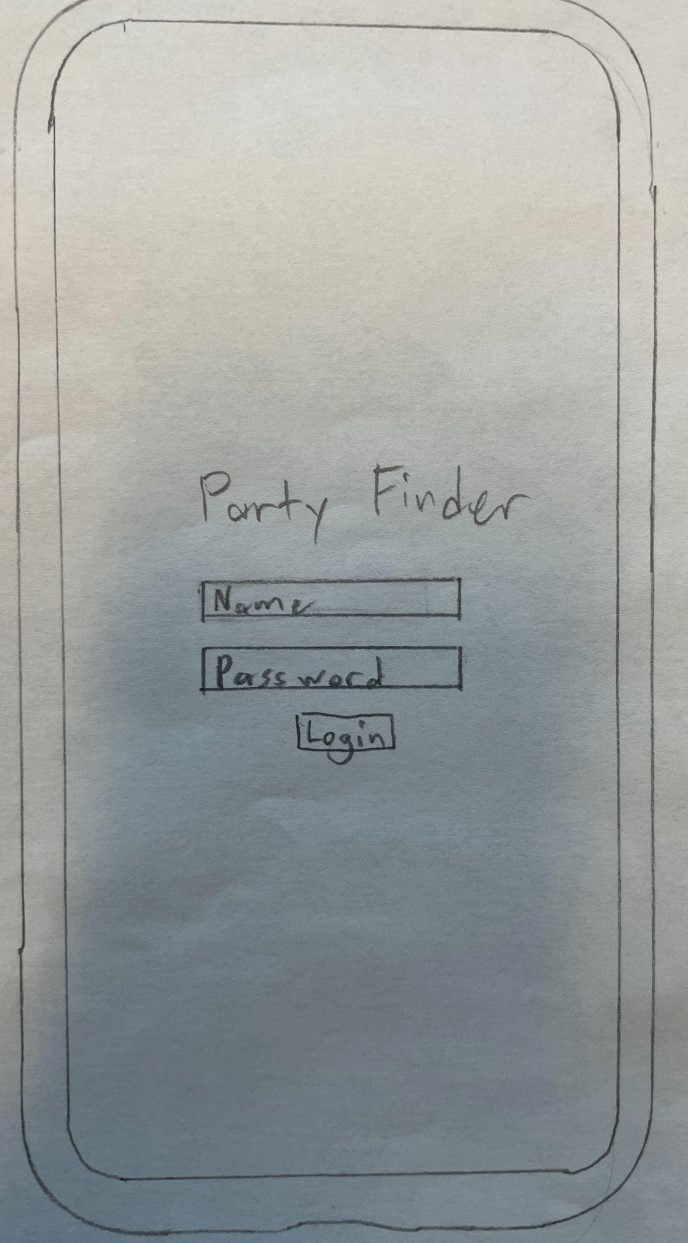 Party Finder
Name
Password
Login